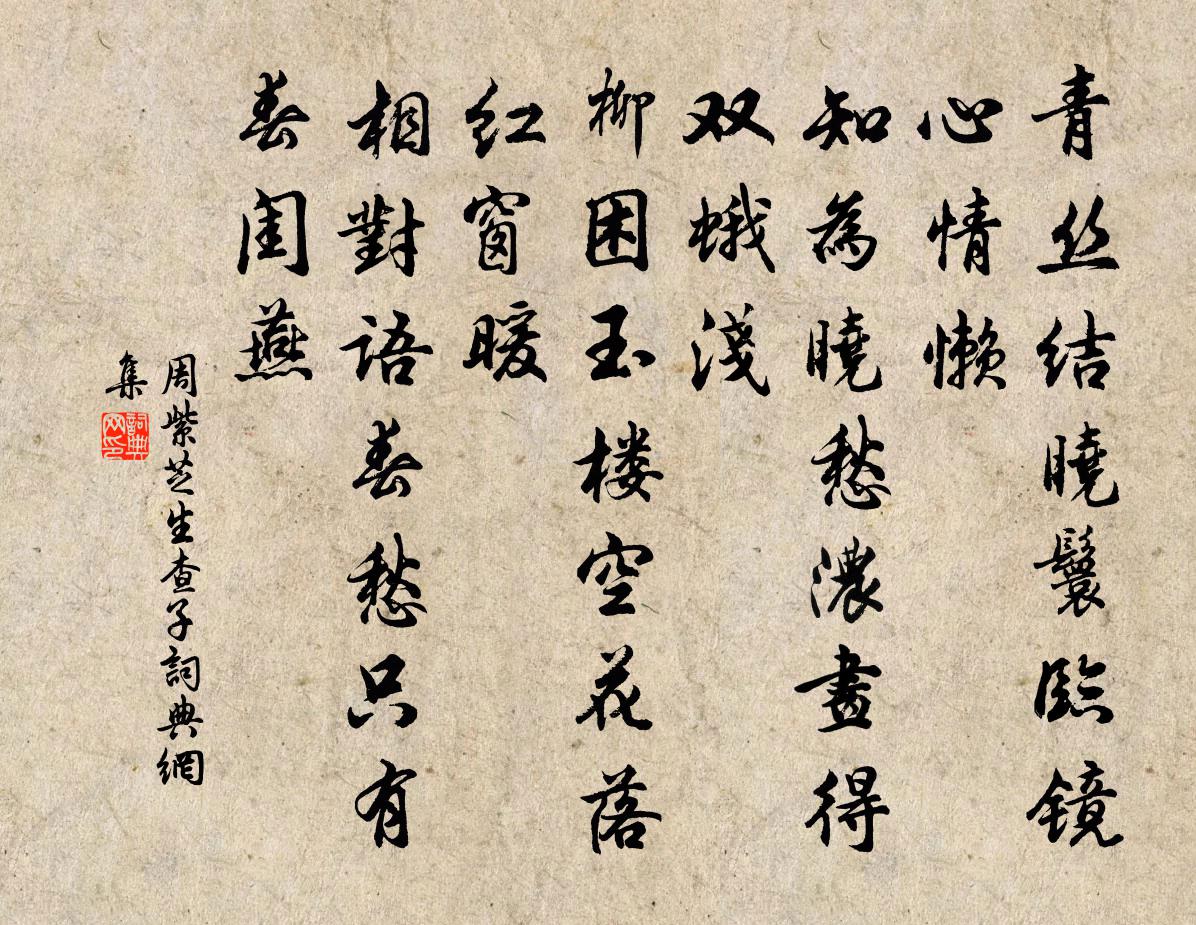 青丝结曉鬟臨镜
心情懒
知為曉愁濃畫得
双蛾淺
柳困玉楼空花落
红窗暖
相對語春愁只有
春闺燕
周紫芝生查子詞典網
集
詞典网印